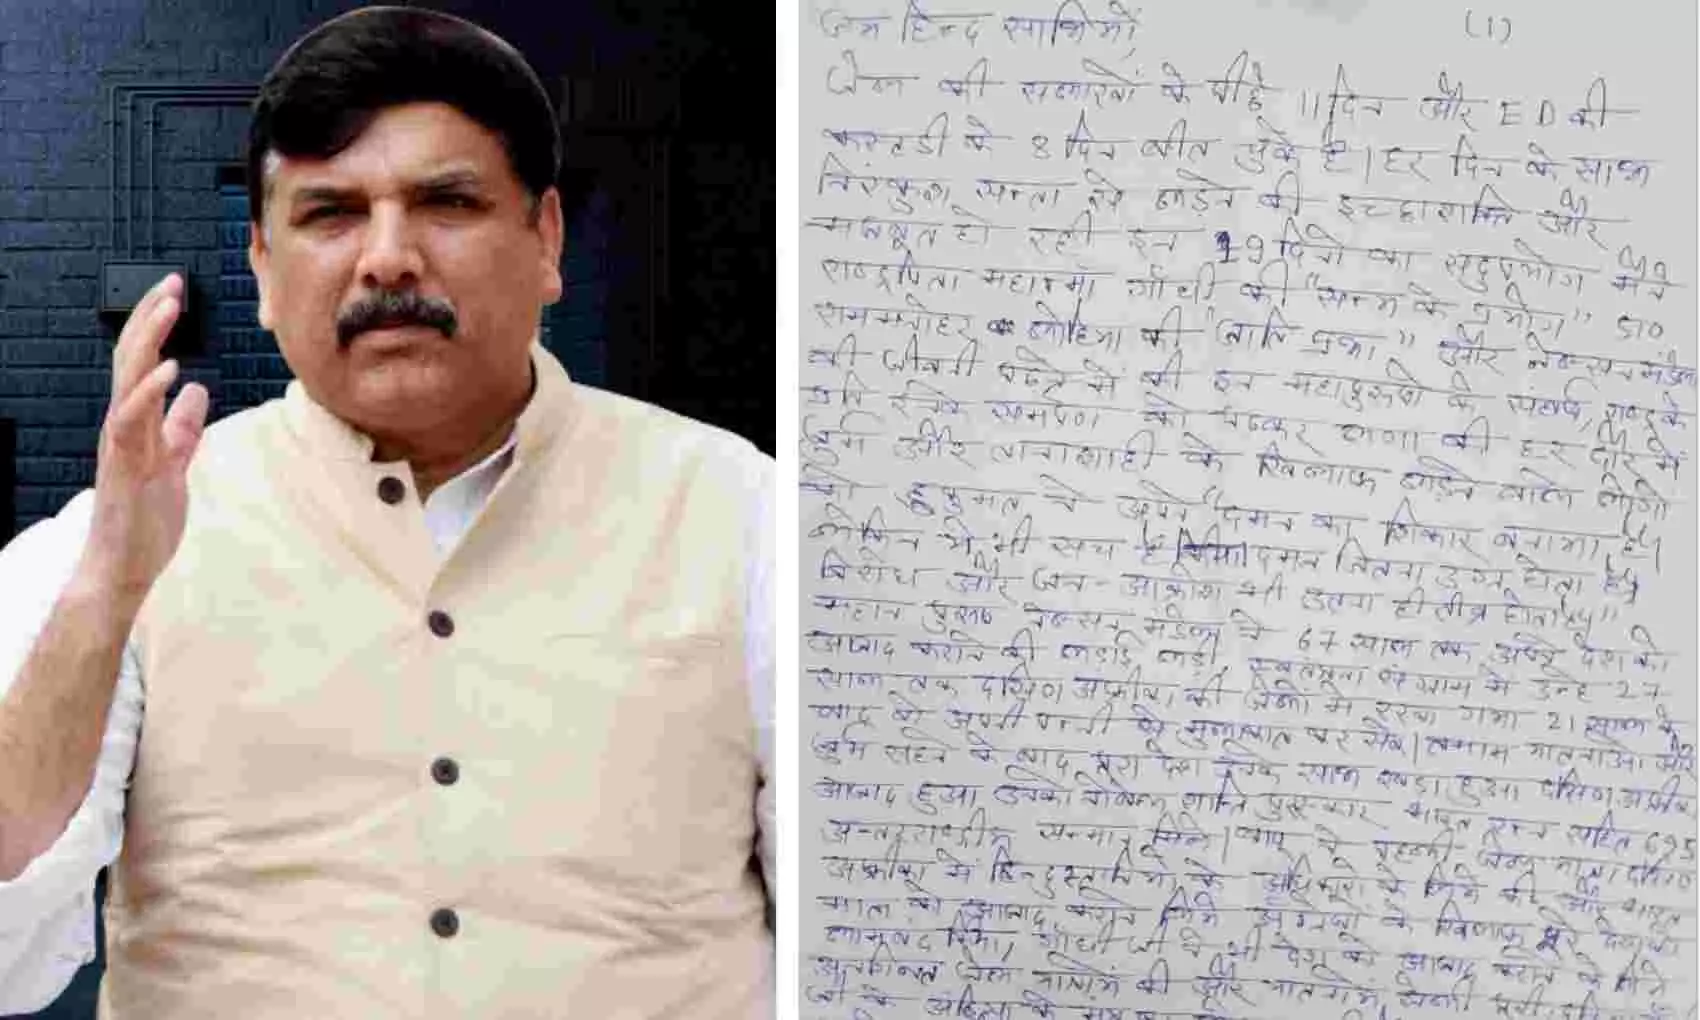 जय हिन्द साथियों, (1)
जेल की सलाखों के पीछे 11 दिन और ED की
कस्टडी के 8 दिन बीत चुके है। हर दिन के साथ
निरंकुश सत्ता से लड़ने की इच्छाशक्ति और
मजबूत हो रही इन 19 दिनो का सदुपयोग मैंने
राष्ट्रपिता महात्मा गाँधी की "सत्य के प्रयोग" डा०
राममनोहर लोहिया की "जाति प्रथा" और नेल्सन मंडेला
की जीवनी पढ़ने में की इन महापुरुषो के संघर्ष, राष्ट्र के
प्रति उनके समर्पण को पढ़कर लगा की हर दौर में
जुर्म और तानाशाही के खिलाफ लड़ने वाले लोगो
को हुकुमत ने अपने "दमन का शिकार बनाया है।
लेकिन ये भी सच है दमन जितना उग्र होता है
विरोध और जन-आक्रोश भी उतना ही तीव्र होता है"
महान पुरुष नेल्सन मंडेला ने 67 साल तक अपने देश को
आजाद कराने की लड़ाई लड़ी, स्वतंत्रता संग्राम मे उन्हे 27
साल तक दक्षिण अफ्रीका की जेलों मे रखा गया 21 साल के
बाद वो अपनी पत्नी से मुलाकात कर सके। तमाम यातनाओं और
जुर्म सहने के बाद पूरा देश उनके साथ खड़ा हुआ दक्षिण अफ्रीका
आजाद हुआ उनको नोबेल शांति पुरस्कार भारत रत्न सहित 695
अन्तरराष्ट्रीय सम्मान मिले। बापू ने पहली जेल यात्रा दक्षिण
अफ्रीका में हिन्दुस्तानियो के अधिकारो के लिये की और भारत
माता को आजाद कराने लिये अंग्रेजो के खिलाफ पूरे देश को
लामबंद किया, गाँधी जी ने भी देश को आजाद कराने के लिये
अनगिनत जेल यात्रायें की और
जी के अहिंसा के